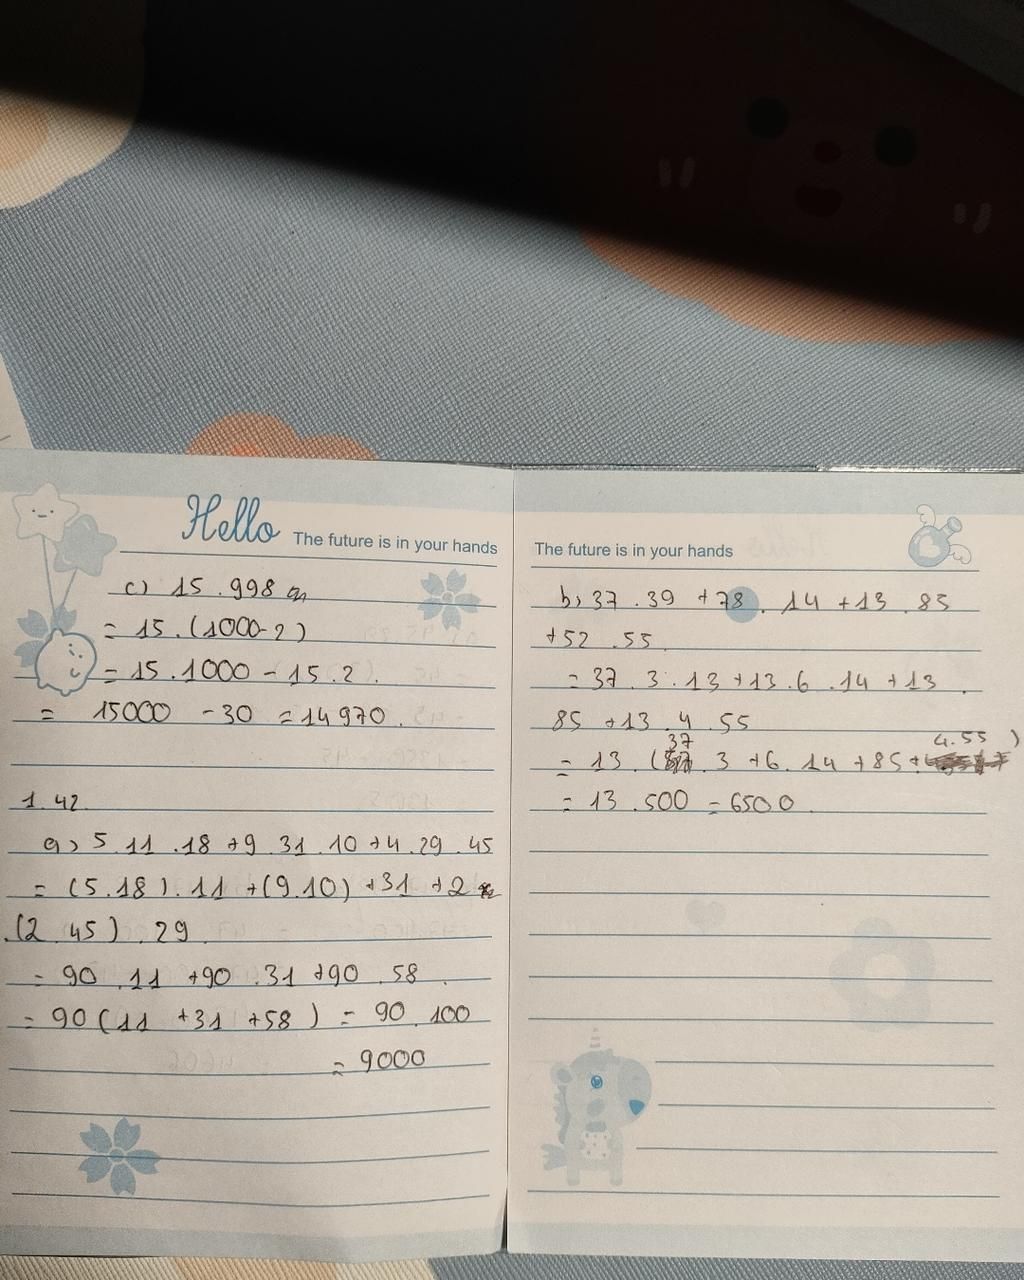 Hello The future is in your hands
c) 15 . 998
= 15 . (1000-2)
= 15 . 1000 - 15 . 2 .
= 15000 - 30 = 14970 .
1. 42.
a) 5 . 11 . 18 + 9 . 31 . 10 + 4 . 29 . 45
= (5.18) . 11 + (9.10) + 31 + 2
.(2 . 45) . 29 .
= 90 . 11 + 90 . 31 + 90 . 58 .
= 90 (11 + 31 + 58) = 90 . 100
= 9000
The future is in your hands
b) 37 . 39 + 78 . 14 + 13 . 85
+52 . 55 .
= 37 . 3 . 13 + 13 . 6 . 14 + 13 .
85 + 13 . 4 . 55
= 13 . (37 . 3 + 6 . 14 + 85 + 4.55)
= 13 . 500 = 6500 .